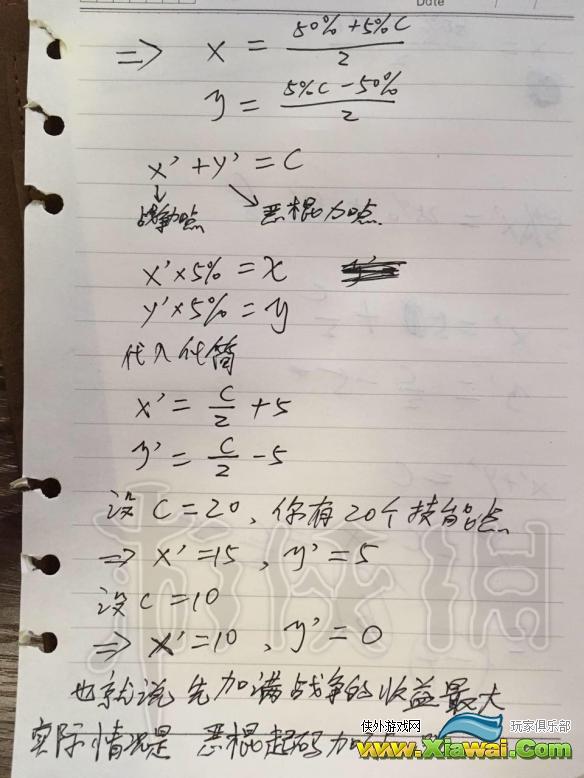 Date
⇒ x = (50% + 5%C) / 2
y = (5%C - 50%) / 2
x' + y' = C
战争加点 恶棍加点
x' × 5% = x
y' × 5% = y
代入化简
x' = C/2 + 5
y' = C/2 - 5
设 C = 20, 你有20个技能点
⇒ x' = 15, y' = 5
设 C = 10
⇒ x' = 10, y' = 0
也就说 先加满战争的收益最大
实际情况是 恶棍起码加
侠外游戏网 玩家俱乐部
www.Xiawai.Com